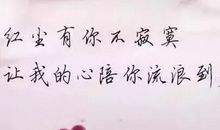 红尘有你不寂寞
让我的心陪你流浪到